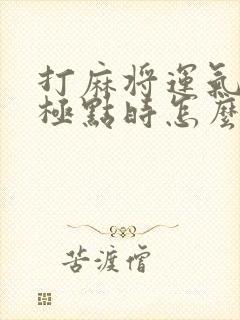 打麻将運氣
極點時怎麼
苦渡僧